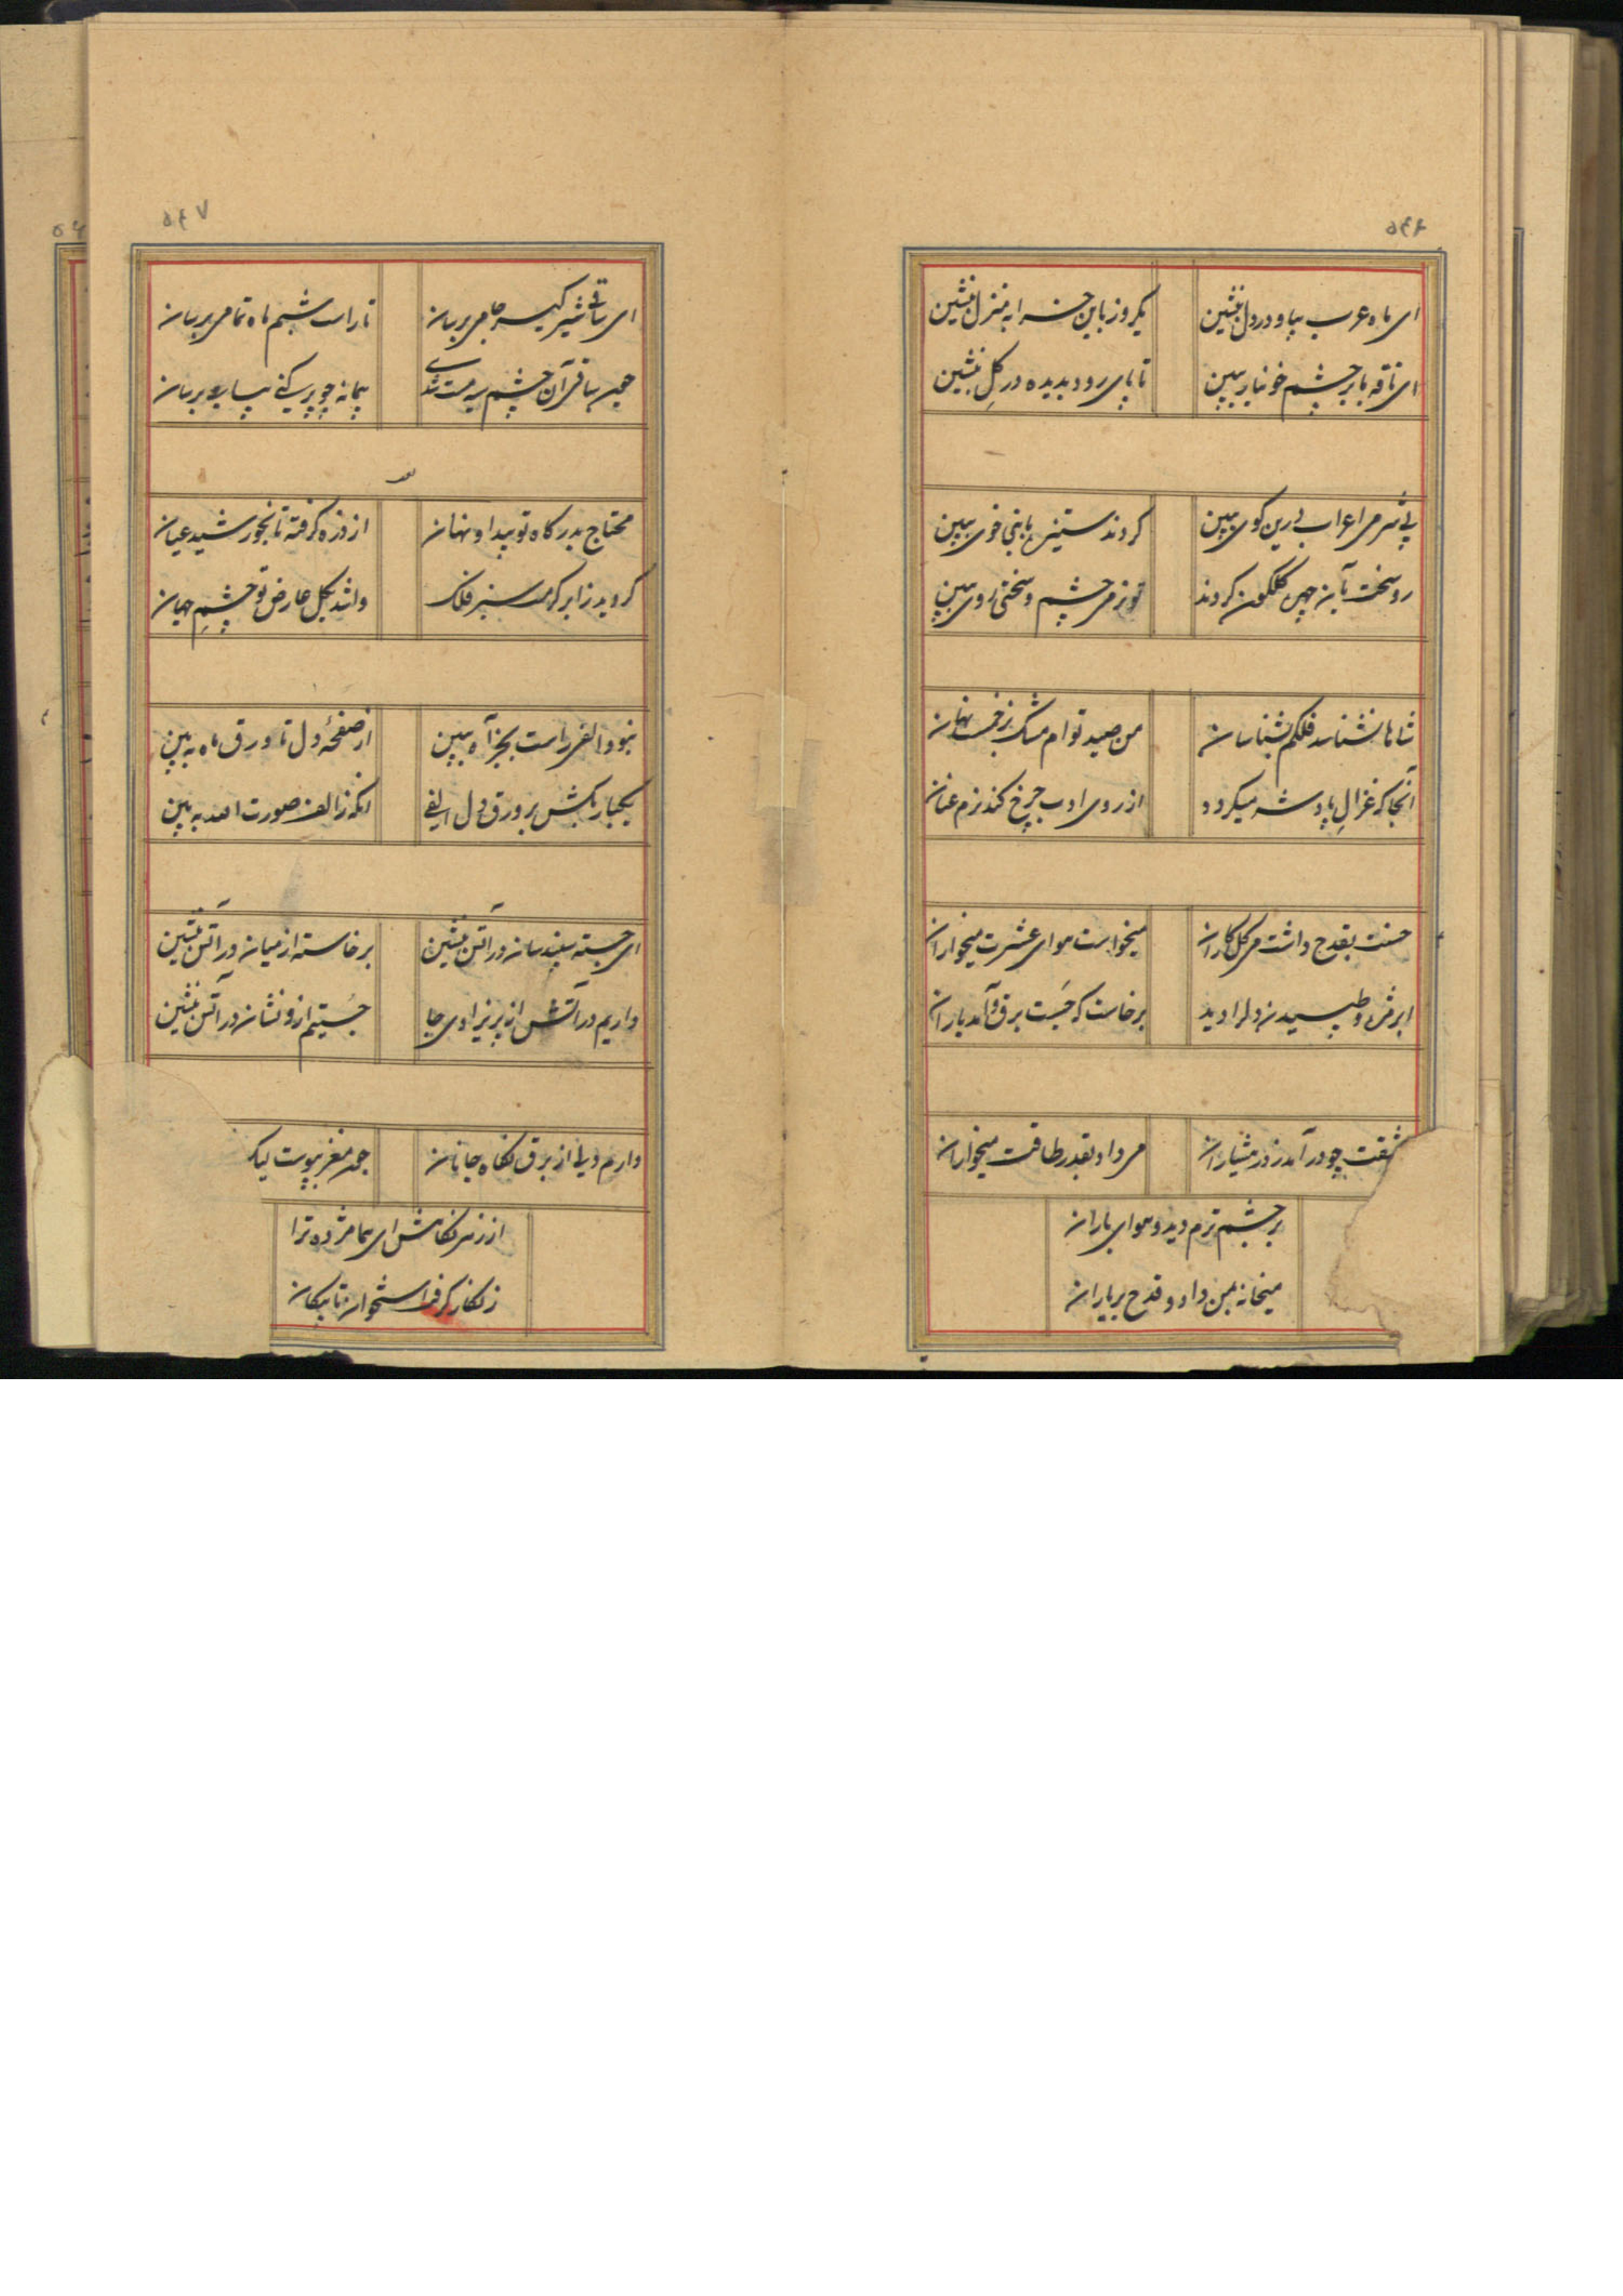 ۵۴۶
ای ماه عرب بیا و در دل بنشین
یکروز باین خرابه منزل بنشین
ای ناقه بابر چشم خونبار ببین
تا پای رود بدیده در گل بنشین
بی شرمی اعراب درین کوی ببین
کردند ستیزها بنی خوی ببین
رو سخت بآن چهره گلگون کردند
تو نرمی چشم و سختی روی ببین
شاها نشناسد فلکم نشناسان
من صید توام مشک زخمت پنهان
آنجا که غزال پادشه میگردد
از روی ادب چرخ کند نرم عنان
حسنت بقدح داشت می گلکاران
میخواست هوای عشرت میخواران
ابر مژه و طپیدن دلرا دید
برخاست که جست برق و آمد باران
عشقت چو درآمد ز در هشیاران
می داد بقدر طاقت میخواران
بر چشم ترم دید و هوای باران
میخانه بمن داد و قدح بر یاران
۵۴۷
ای ساقی شیرگیر جامی برسان
تا راست شبم ماه تمامی برسان
چون ساقی آن چشم سیه مست شدی
پیمانه چو پر کنی پیاپی برسان
محتاج بدرگاه تو پیدا و نهان
از ذره گرفته تا بخورشید عیان
گردید ز ابر کرمت سبز فلک
وا شد بگل عارض تو چشم جهان
نبود الفی راست بجز آه ببین
از صفحهٔ دل تا ورق ماه ببین
یکبار بکش بر ورق دل الفی
آنگه ز الف صورت الله ببین
ای جسته سپندسان در آتش بنشین
برخاسته از میان در آتش بنشین
داریم در آتش از پریزادی جا
جستیم ازو نشان در آتش بنشین
دارم دلی از برق نگاه جانان
چون مغز بپوست
از زنگاهش ای هما مژده ترا
زنگار گرفت استخوان تا پیکان